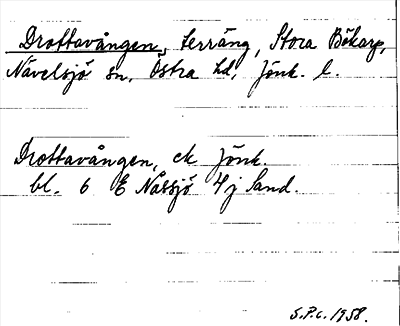 Drottavången, terräng, Stora Bökarp,
Nävelsjö sn, Östra hd, Jönk. l.
Drottavången, ek Jönk.
bl. 6 E Nässjö 4j Sand.
S.P.c. 1958.